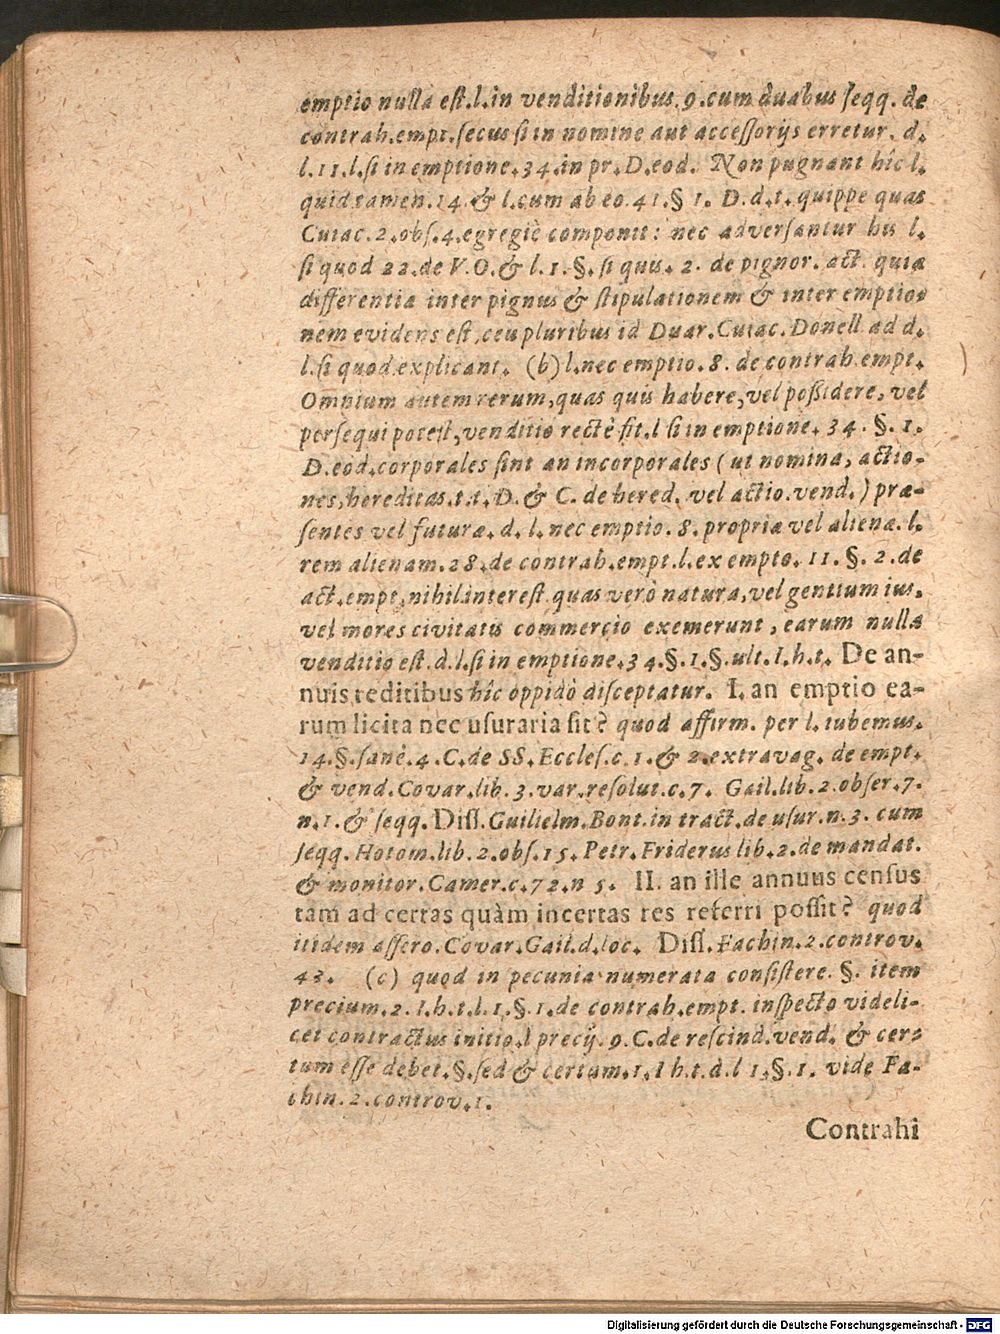 emptio nulla est. l. in venditionibus. 9. cum duabus seqq. de
contrah. empt. secus si in nomine aut accessorijs erretur. d.
l. 11. l. si in emptione. 34. in pr. D. eod. Non pugnant hîc l.
quid tamen. 14. & l. cum ab eo. 41. § 1. D. d. t. quippe quas
Cuiac. 2. obs. 4. egregiè componit: nec adversantur his l.
si quod 22. de V. O. & l. 1. §. si quis. 2. de pignor. act. quia
differentia inter pignus & stipulationem & inter emptio-
nem evidens est, ceu pluribus id Duar. Cuiac. Donell. ad d.
l. si quod explicant. (b) l. nec emptio. 8. de contrah. empt.
Omnium autem rerum, quas quis habere, vel possidere, vel
persequi potest, venditio rectè fit. l si in emptione. 34. §. 1.
D. eod. corporales sint an incorporales (ut nomina, actio-
nes, hereditas. t. t. D. & C. de hered. vel actio. vend.) præ-
sentes vel futuræ. d. l. nec emptio. 8. propriæ vel alienæ. l.
rem alienam. 28. de contrah. empt. l. ex empto. 11. §. 2. de
act. empt. nihil interest. quas vero natura, vel gentium ius,
vel mores civitatis commercio exemerunt, earum nulla
venditio est. d. l. si in emptione. 34. §. 1. §. ult. I. h. t. De an-
nuis reditibus hîc oppidò disceptatur. I. an emptio ea-
rum licita nec usuraria sit? quod affirm. per l. iubemus.
14. §. sanè. 4. C. de SS. Eccles. c. 1. & 2. extravag. de empt.
& vend. Covar. lib. 3. var. resolut. c. 7. Gail. lib. 2. obser. 7.
n. 1. & seqq. Diss. Guilielm. Bont. in tract. de usur. n. 3. cum
seqq. Hotom. lib. 2. obs. 15. Petr. Friderus lib. 2. de mandat.
& monitor. Camer. c. 72. n 5. II. an ille annuus census
tam ad certas quàm incertas res referri possit? quod
itidem assero. Covar. Gail. d. loc. Diss. Fachin. 2. controv.
43. (c) quod in pecunia numerata consistere. §. item
precium. 2. I. h. t. l. 1. §. 1. de contrah. empt. inspecto videli-
cet contractus initio. l precij. 9. C. de rescind. vend. & cer-
tum esse debet. §. sed & certum. 1. I h. t. d. l 1. §. 1. vide Fa-
chin. 2. controv. 1.
Contrahi
Digitalisierung gefördert durch die Deutsche Forschungsgemeinschaft - DFG